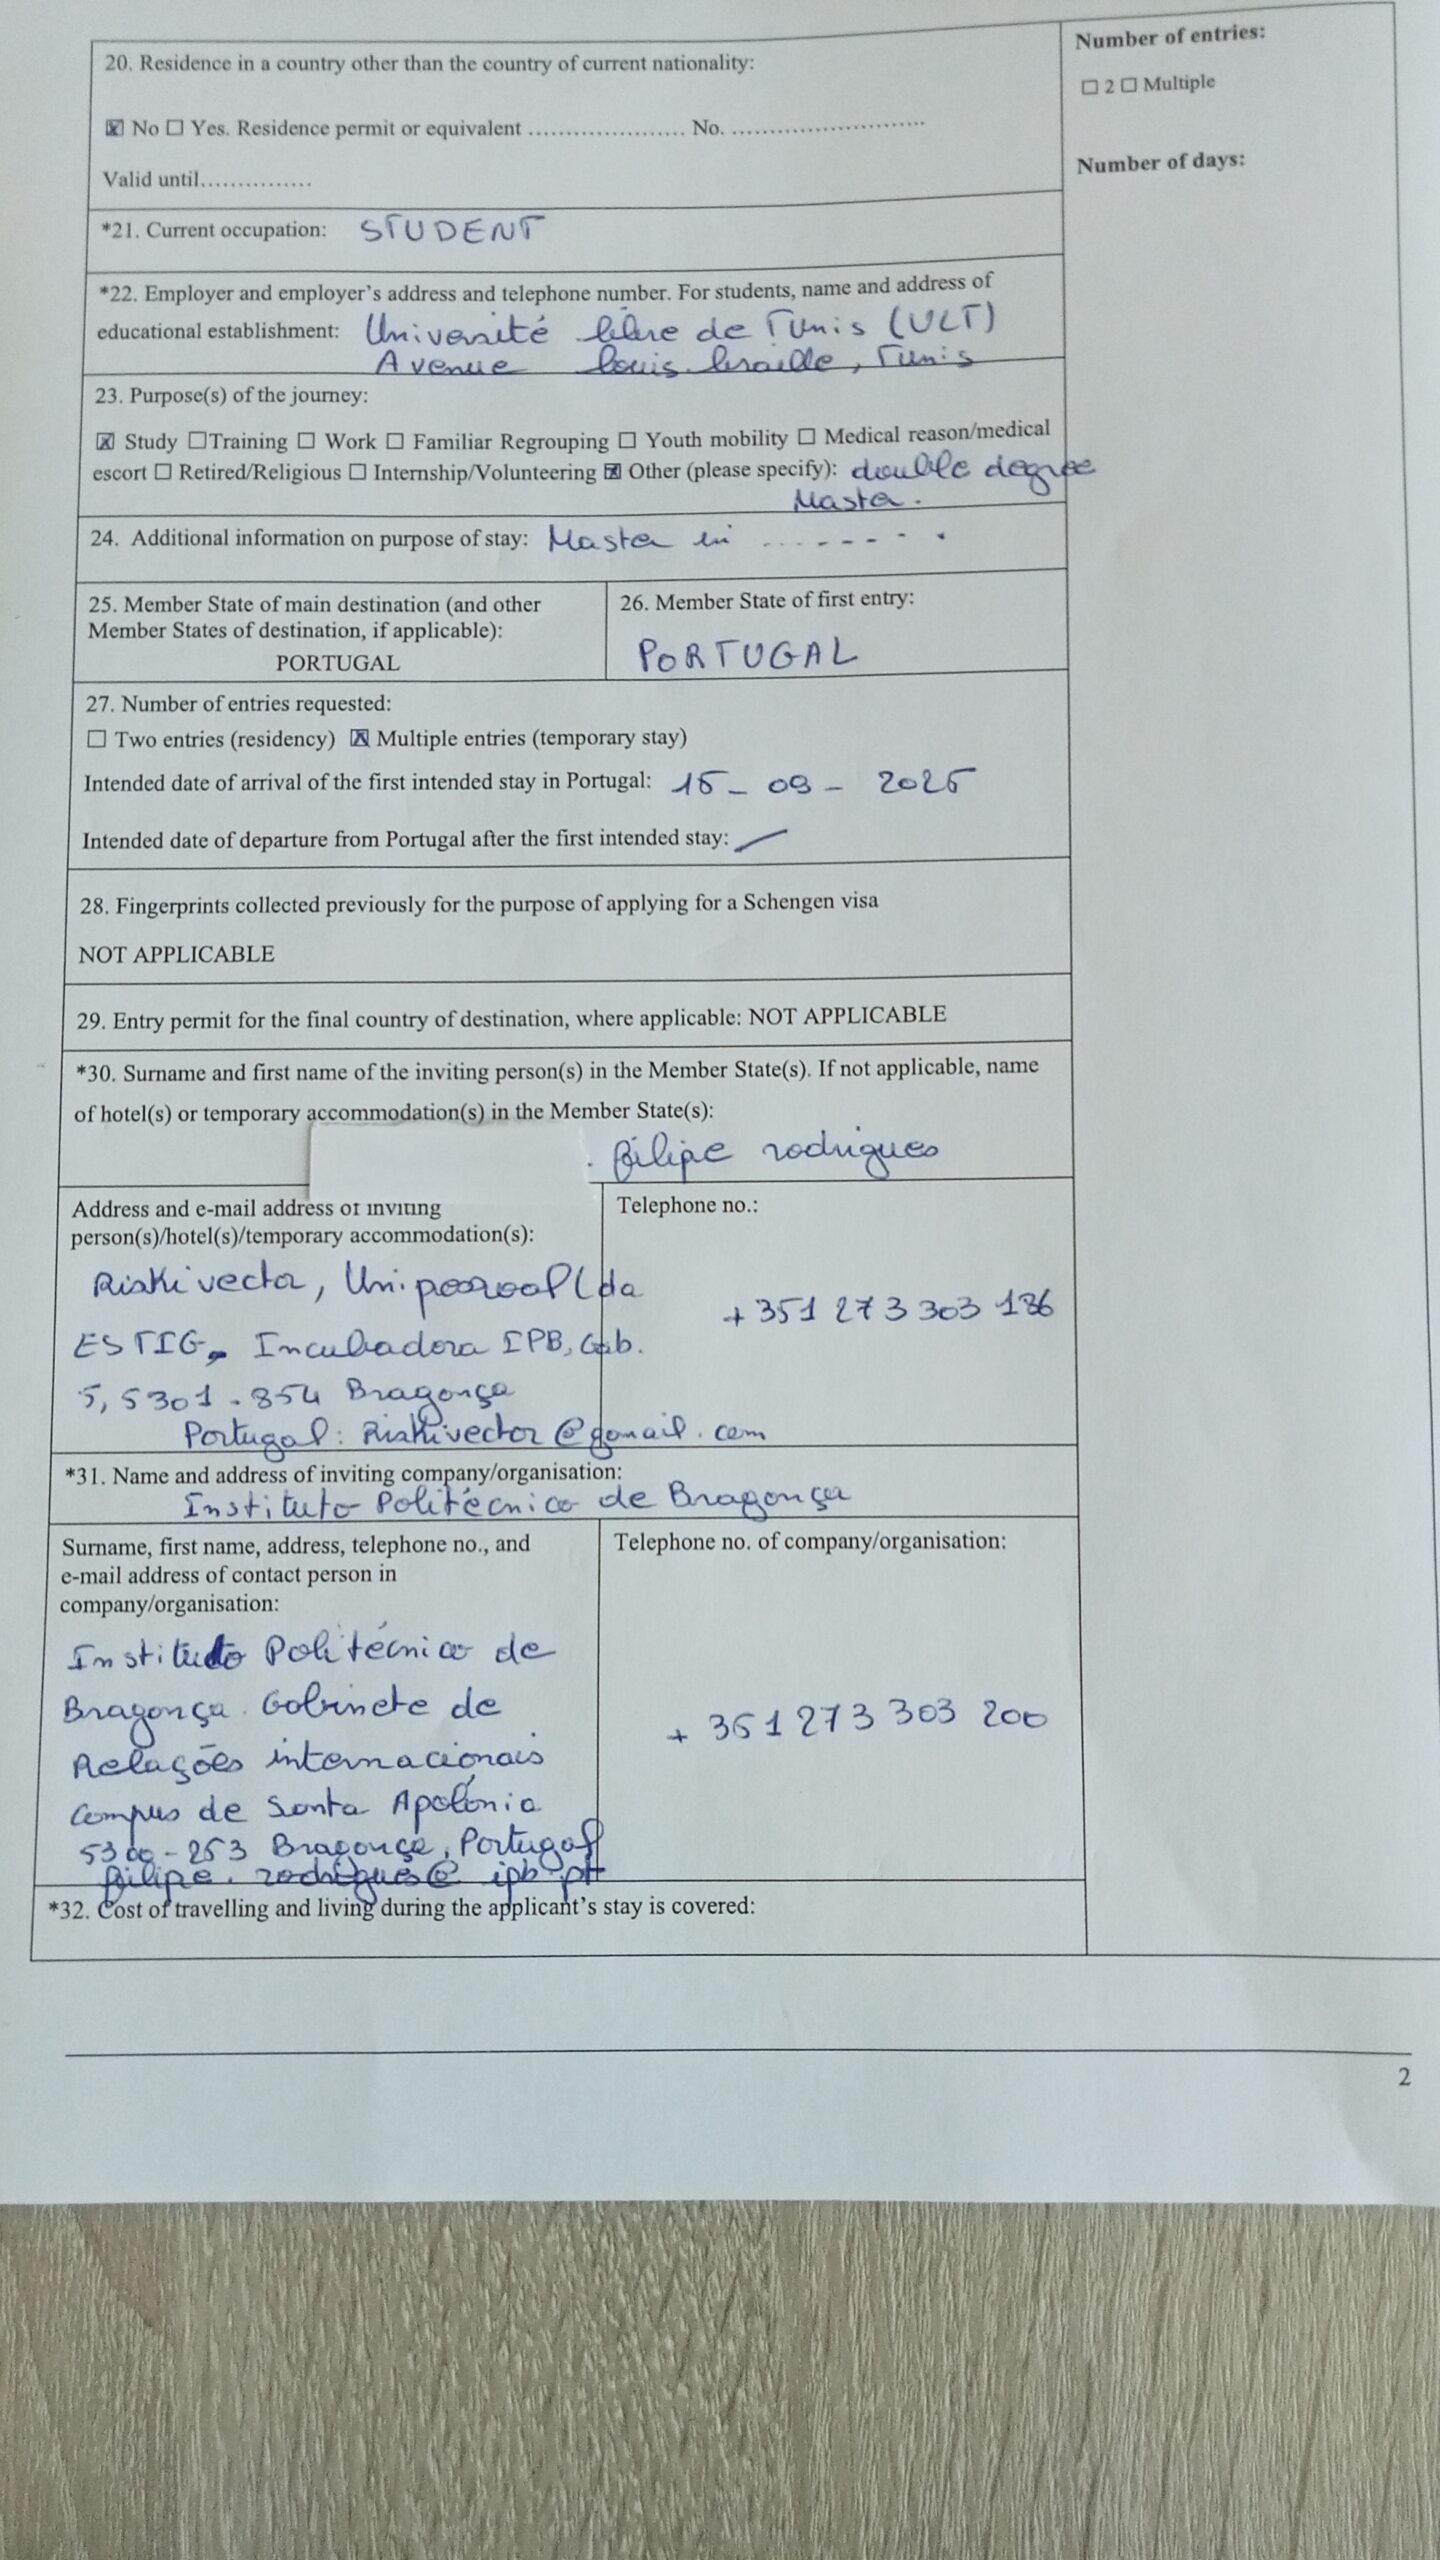 20. Residence in a country other than the country of current nationality:
☒ No ☐ Yes. Residence permit or equivalent ..................... No. ..........................
Valid until...............
Number of entries:
☐ 2 ☐ Multiple
Number of days:
*21. Current occupation: STUDENT
*22. Employer and employer's address and telephone number. For students, name and address of
educational establishment: Université libre de Tunis (ULT)
Avenue Louis braille, Tunis
23. Purpose(s) of the journey:
☒ Study ☐Training ☐ Work ☐ Familiar Regrouping ☐ Youth mobility ☐ Medical reason/medical
escort ☐ Retired/Religious ☐ Internship/Volunteering ☒ Other (please specify): double degree
Master.
24. Additional information on purpose of stay: Master in . . . - - - - - .
25. Member State of main destination (and other
Member States of destination, if applicable):
PORTUGAL
26. Member State of first entry:
PORTUGAL
27. Number of entries requested:
☐ Two entries (residency) ☒ Multiple entries (temporary stay)
Intended date of arrival of the first intended stay in Portugal: 15 - 09 - 2025
Intended date of departure from Portugal after the first intended stay: /
28. Fingerprints collected previously for the purpose of applying for a Schengen visa
NOT APPLICABLE
29. Entry permit for the final country of destination, where applicable: NOT APPLICABLE
*30. Surname and first name of the inviting person(s) in the Member State(s). If not applicable, name
of hotel(s) or temporary accommodation(s) in the Member State(s):
. filipe rodrigues
Address and e-mail address of inviting
person(s)/hotel(s)/temporary accommodation(s):
Riskivector, Unipessoal Lda
ESTIG, Incubadora IPB, Gab.
5, 5301-854 Bragança
Portugal: Riskivector@gmail.com
Telephone no.:
+351 273 303 136
*31. Name and address of inviting company/organisation:
Instituto Politécnico de Bragança
Surname, first name, address, telephone no., and
e-mail address of contact person in
company/organisation:
Instituto Politécnico de
Bragança. Gabinete de
Relações internacionais
Campus de Santa Apolónia
5300-253 Bragança, Portugal
filipe.rodrigues@ipb.pt
Telephone no. of company/organisation:
+ 351 273 303 200
*32. Cost of travelling and living during the applicant's stay is covered:
2